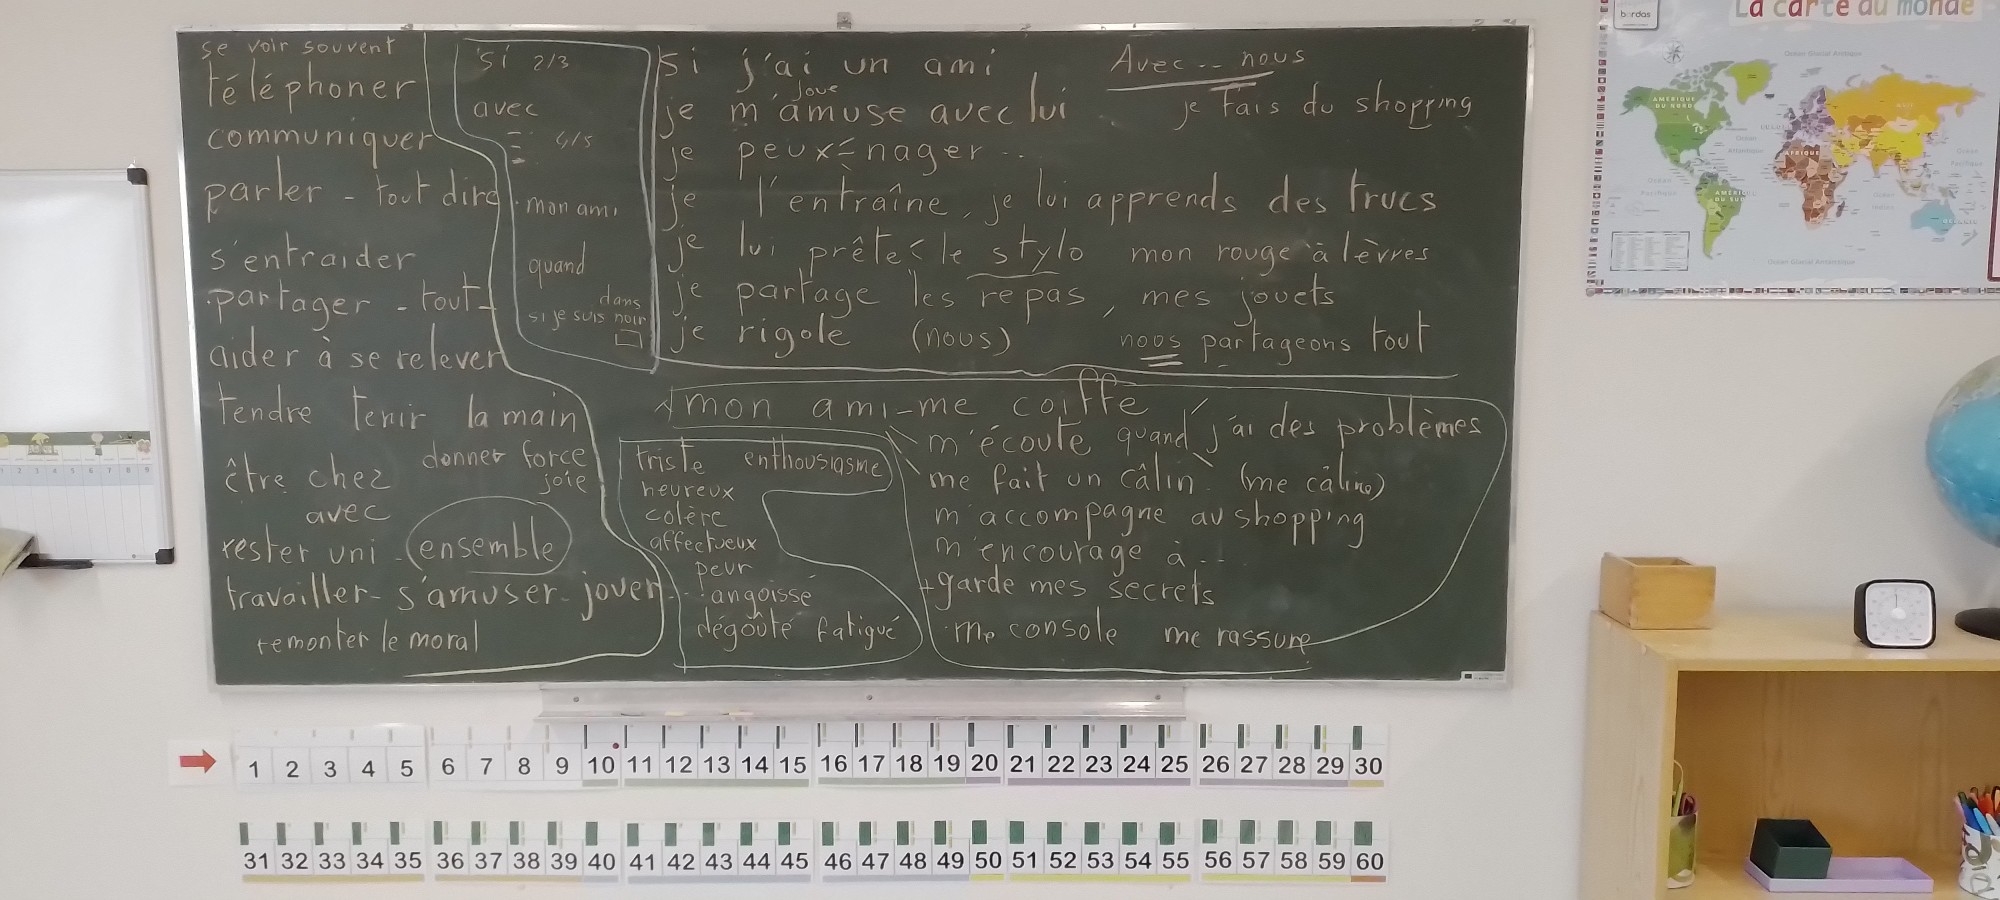 se voir souvent
téléphoner
communiquer
parler - tout dire
s'entraider
partager - tout
aider à se relever
tendre tenir la main
donner force
être chez joie
avec
rester uni - ensemble
travailler - s'amuser - jouer...
remonter le moral
si 2/3
avec
4/5
mon ami
quand
dans
si je suis noir
si j'ai un ami
joue
je m'amuse avec lui
je peux nager ..
je l'entraîne, je lui apprends des trucs
je lui prête < le stylo mon rouge à lèvres
je partage les repas, mes jouets
je rigole (nous) nous partageons tout
Avec .. nous
je fais du shopping
mon ami - me coiffe
m'écoute quand j'ai des problèmes
me fait un câlin (me câline)
m'accompagne au shopping
m'encourage à ...
+ garde mes secrets
me console me rassure
triste enthousiasme
heureux
colère
affectueux
peur
angoissé
dégoûté fatigué
bordas
La carte du monde
AMÉRIQUE DU NORD
AMÉRIQUE DU SUD
AFRIQUE
ASIE
1 2 3 4 5 6 7 8 9 10 11 12 13 14 15 16 17 18 19 20 21 22 23 24 25 26 27 28 29 30
31 32 33 34 35 36 37 38 39 40 41 42 43 44 45 46 47 48 49 50 51 52 53 54 55 56 57 58 59 60